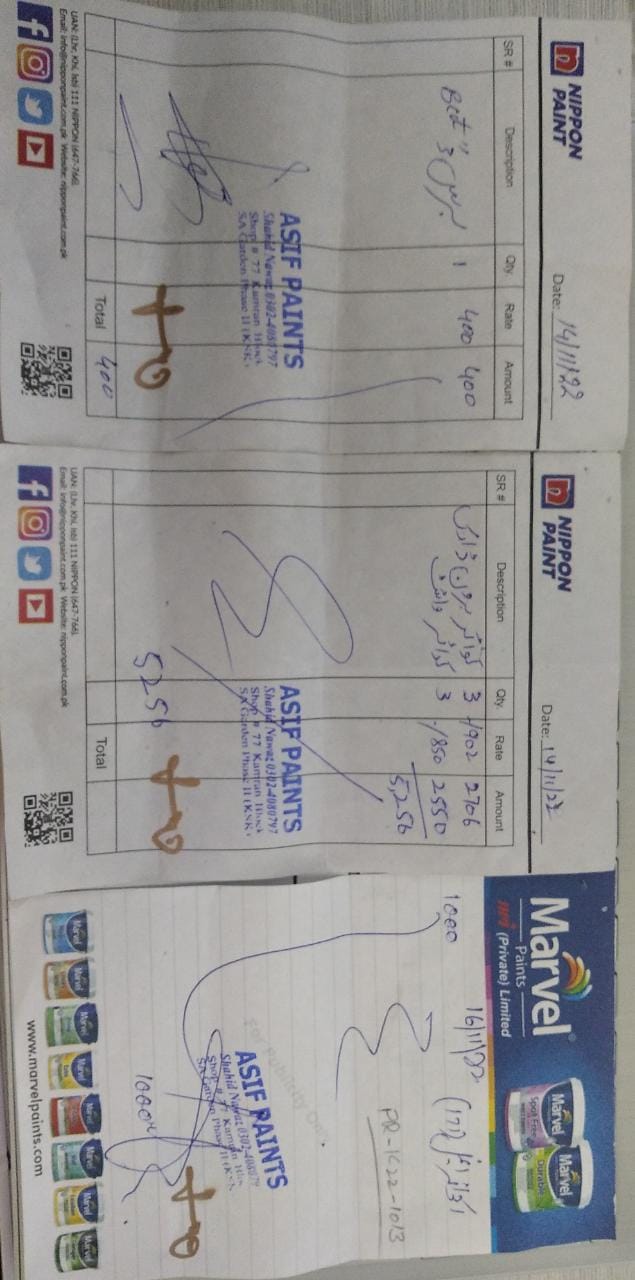 NIPPON
PAINT
Date: 14/11/22
SR # Description Qty. Rate Amount
Best " 3 برش 1 400 400
ASIF PAINTS
Shahid Nawaz 0302-4080797
Shop # 77 Kamran Block
SA Garden Phase II (KSK)
Total 400
UAN: (Lhr, Khi, Isb) 111 NIPPON (647-766)
Email: info@nipponpaint.com.pk Website: nipponpaint.com.pk
NIPPON
PAINT
Date: 14/11/22
SR # Description Qty. Rate Amount
براؤن 3 /902 2706
وائٹ 3 /850 2550
5,256
ASIF PAINTS
Shahid Nawaz 0302-4080797
Shop # 77 Kamran Block
SA Garden Phase II (KSK)
5256
Total
UAN: (Lhr, Khi, Isb) 111 NIPPON (647-766)
Email: info@nipponpaint.com.pk Website: nipponpaint.com.pk
Marvel
Paints
(Private) Limited
Marvel
Spot Free
Marvel
Durable
16/11/22
1000
PR-1C22-1013
For Publicity Only
ASIF PAINTS
Shahid Nawaz 0302-4080797
Shop # 77 Kamran Block
SA Garden Phase II (KSK)
1000
www.marvelpaints.com